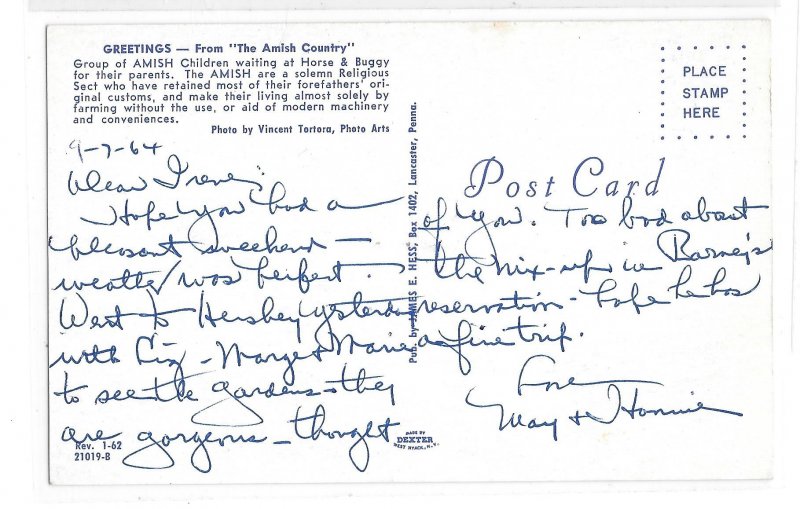 GREETINGS — From "The Amish Country"
Group of AMISH Children waiting at Horse & Buggy
for their parents. The AMISH are a solemn Religious
Sect who have retained most of their forefathers' ori-
ginal customs, and make their living almost solely by
farming without the use, or aid of modern machinery
and conveniences.
Photo by Vincent Tortora, Photo Arts
9-7-64
Dear Irene;
Hope you had a
pleasant weekend —
weather was perfect.
Went to Hershey yesterday
with Liz - Marge & Marie
to see the gardens - they
are gorgeous - thought
Rev. 1-62
21019-B
Pub. by JAMES E. HESS, Box 1402, Lancaster, Penna.
MADE BY
DEXTER
WEST NYACK, N.Y.
PLACE
STAMP
HERE
Post Card
of you. Too bad about
the mix-up in Barney's
reservation - hope he has
a fine trip.
Love
May &